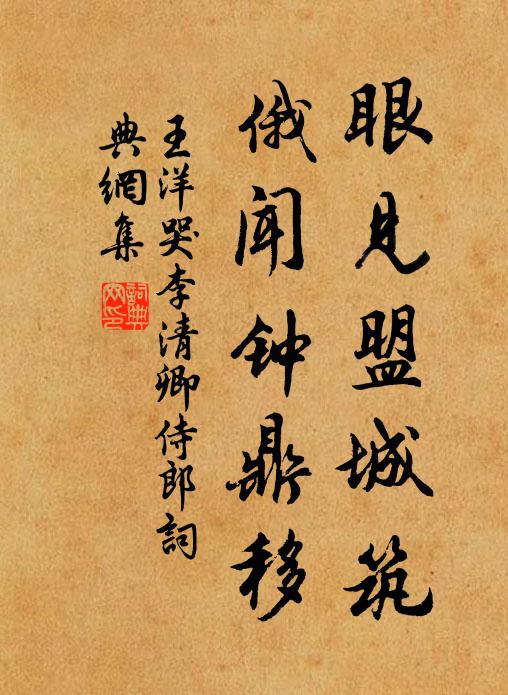 眼见盟城筑
俄闻钟鼎移
王洋哭李清卿侍郎词
典網集
詞典網印